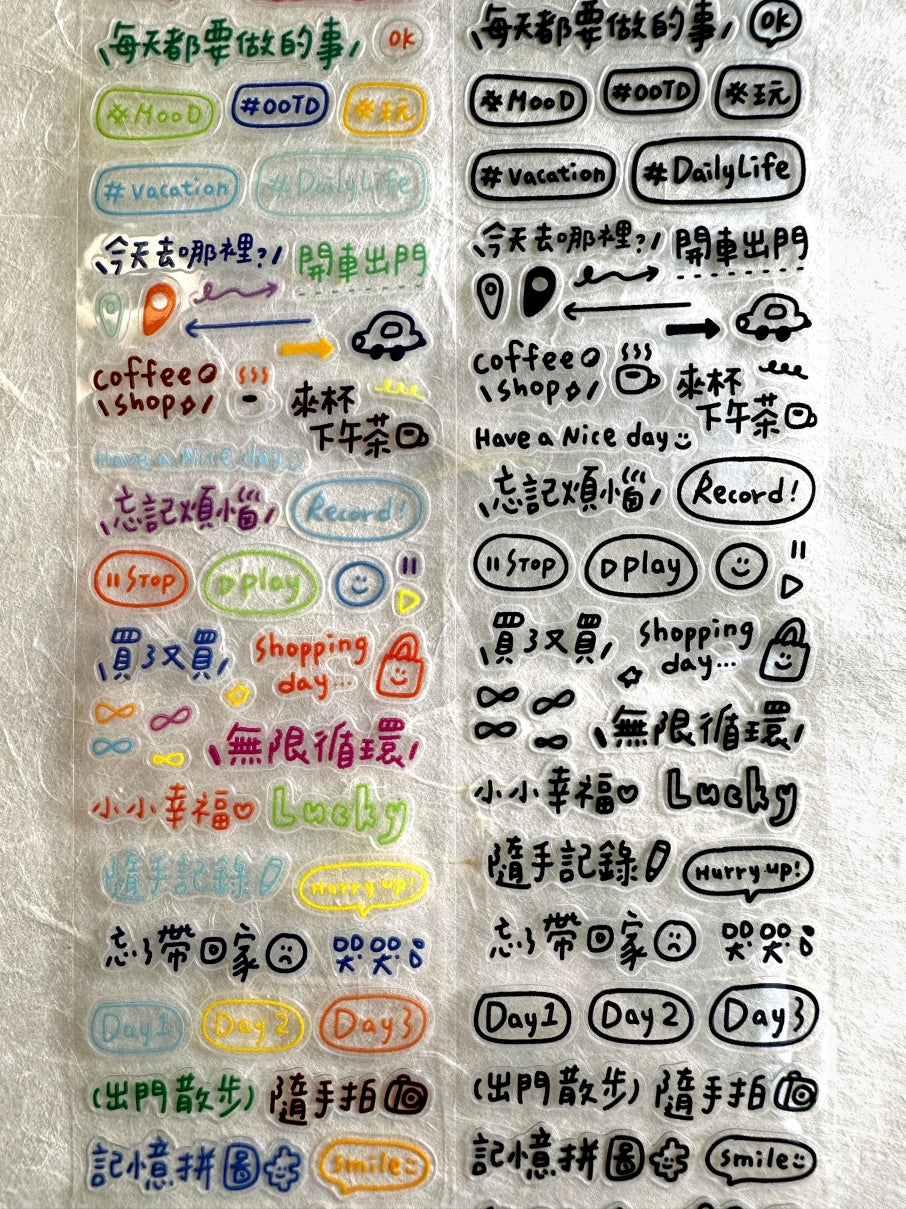 每天都要做的事 OK
*MooD #OOTD *玩
#vacation #DailyLife
今天去哪裡? 開車出門
coffee
shop
來杯
下午茶
Have a Nice day
忘記煩惱 Record!
STOP play
買了又買 shopping
day...
無限循環
小小幸福 Lucky
隨手記錄 Hurry up!
忘了帶回家 哭哭
Day1 Day2 Day3
(出門散步) 隨手拍
記憶拼圖 smile
每天都要做的事 OK
*MooD #OOTD *玩
#vacation #DailyLife
今天去哪裡? 開車出門
coffee
shop
來杯
下午茶
Have a Nice day
忘記煩惱 Record!
STOP play
買了又買 shopping
day...
無限循環
小小幸福 Lucky
隨手記錄 Hurry up!
忘了帶回家 哭哭
Day1 Day2 Day3
(出門散步) 隨手拍
記憶拼圖 smile